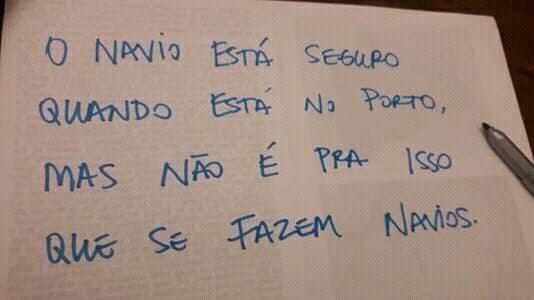 O NAVIO ESTÁ SEGURO
QUANDO ESTÁ NO PORTO,
MAS NÃO É PRA ISSO
QUE SE FAZEM NAVIOS.